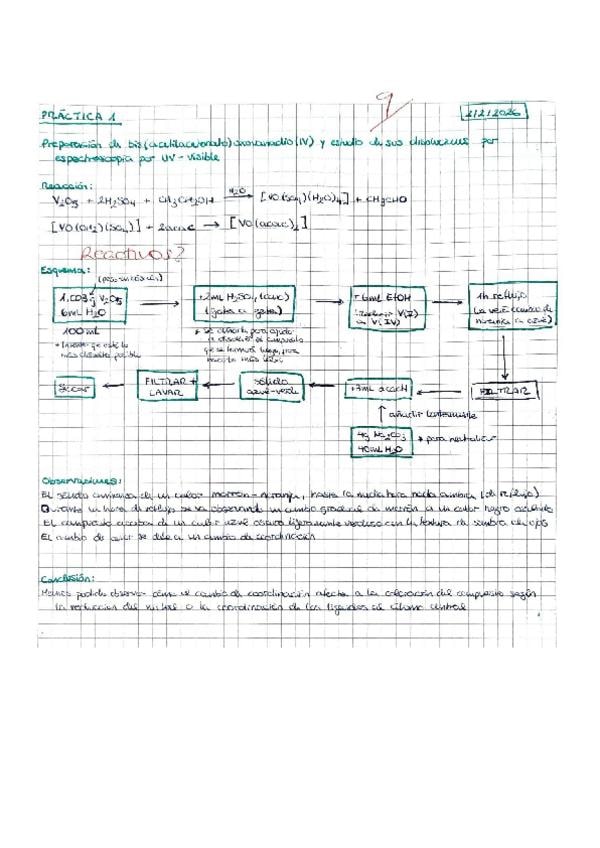 9
PRÁCTICA 1
2/2/2026
Preparación de bis(acetilacetonato)oxovanadio(IV) y estudio de sus disoluciones por
espectroscopía por UV-visible
Reacción:
V2O5 + 2H2SO4 + CH3CH2OH H2O → [VO(SO4)(H2O)4] + CH3CHO
[VO(OH2)(SO4)] + 2acac → [VO(acac)2]
Reactivos?
Esquema:
1.003 g V2O5
6mL H2O
100 mL
más disuelto posible
+2mL H2SO4 (conc)
(gota a gota)
+ 6mL EtOH
V(V)
a V(IV)
1h reflujo
naranja a azul)
FILTRAR
+3mL acacH
añadir lentamente
4g Na2CO3
40mL H2O
→ para neutralizar
sólido
azul-verde
FILTRAR +
LAVAR
Secar
Observaciones:
El sólido comienza de un color marrón-naranja, hasta la media hora nada cambia (de reflujo)
Durante un hora de reflujo se va observando un cambio gradual de marrón a un color negro azulado
El compuesto acaba de un color azul oscuro ligeramente verdoso con la textura de sombra de ojos
El cambio de color se debe a un cambio de coordinación
Conclusión:
Hemos podido observar cómo el cambio de coordinación afecta a la coloración del compuesto según
la reducción del metal o la coordinación de los ligandos al átomo central